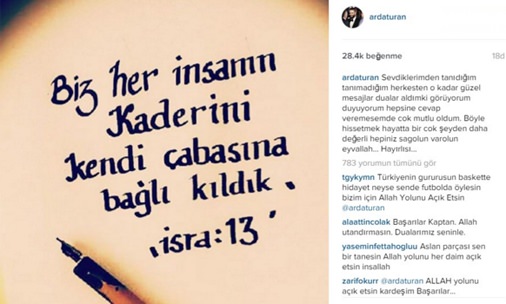 Biz her insanın
Kaderini
kendi çabasına
bağlı kıldık
isra:13
ardaturan
28.4k beğenme
18d
ardaturan Sevdiklerimden tanıdığım
tanımadığım herkesten o kadar güzel
mesajlar dualar aldımki görüyorum
duyuyorum hepsine cevap
veremesemde cok mutlu oldum. Böyle
hissetmek hayatta bir cok şeyden daha
değerli hepiniz sagolun varolun
eyvallah... Hayırlısı...
783 yorumun tümünü gör
tgykymn Türkiyenin gururusun baskette
hidayet neyse sende futbolda öylesin
bizim için Allah Yolunu Açık Etsin
@ardaturan
alaattincolak Başarılar Kaptan. Allah
utandırmasın. Dualarımız seninle.
yaseminfettahogluu Aslan parçası sen
bir tanesin Allah yolunu her daim açık
etsin insallah
zarifokurr @ardaturan ALLAH yolunu
açık etsin kardeşim Başarılar...